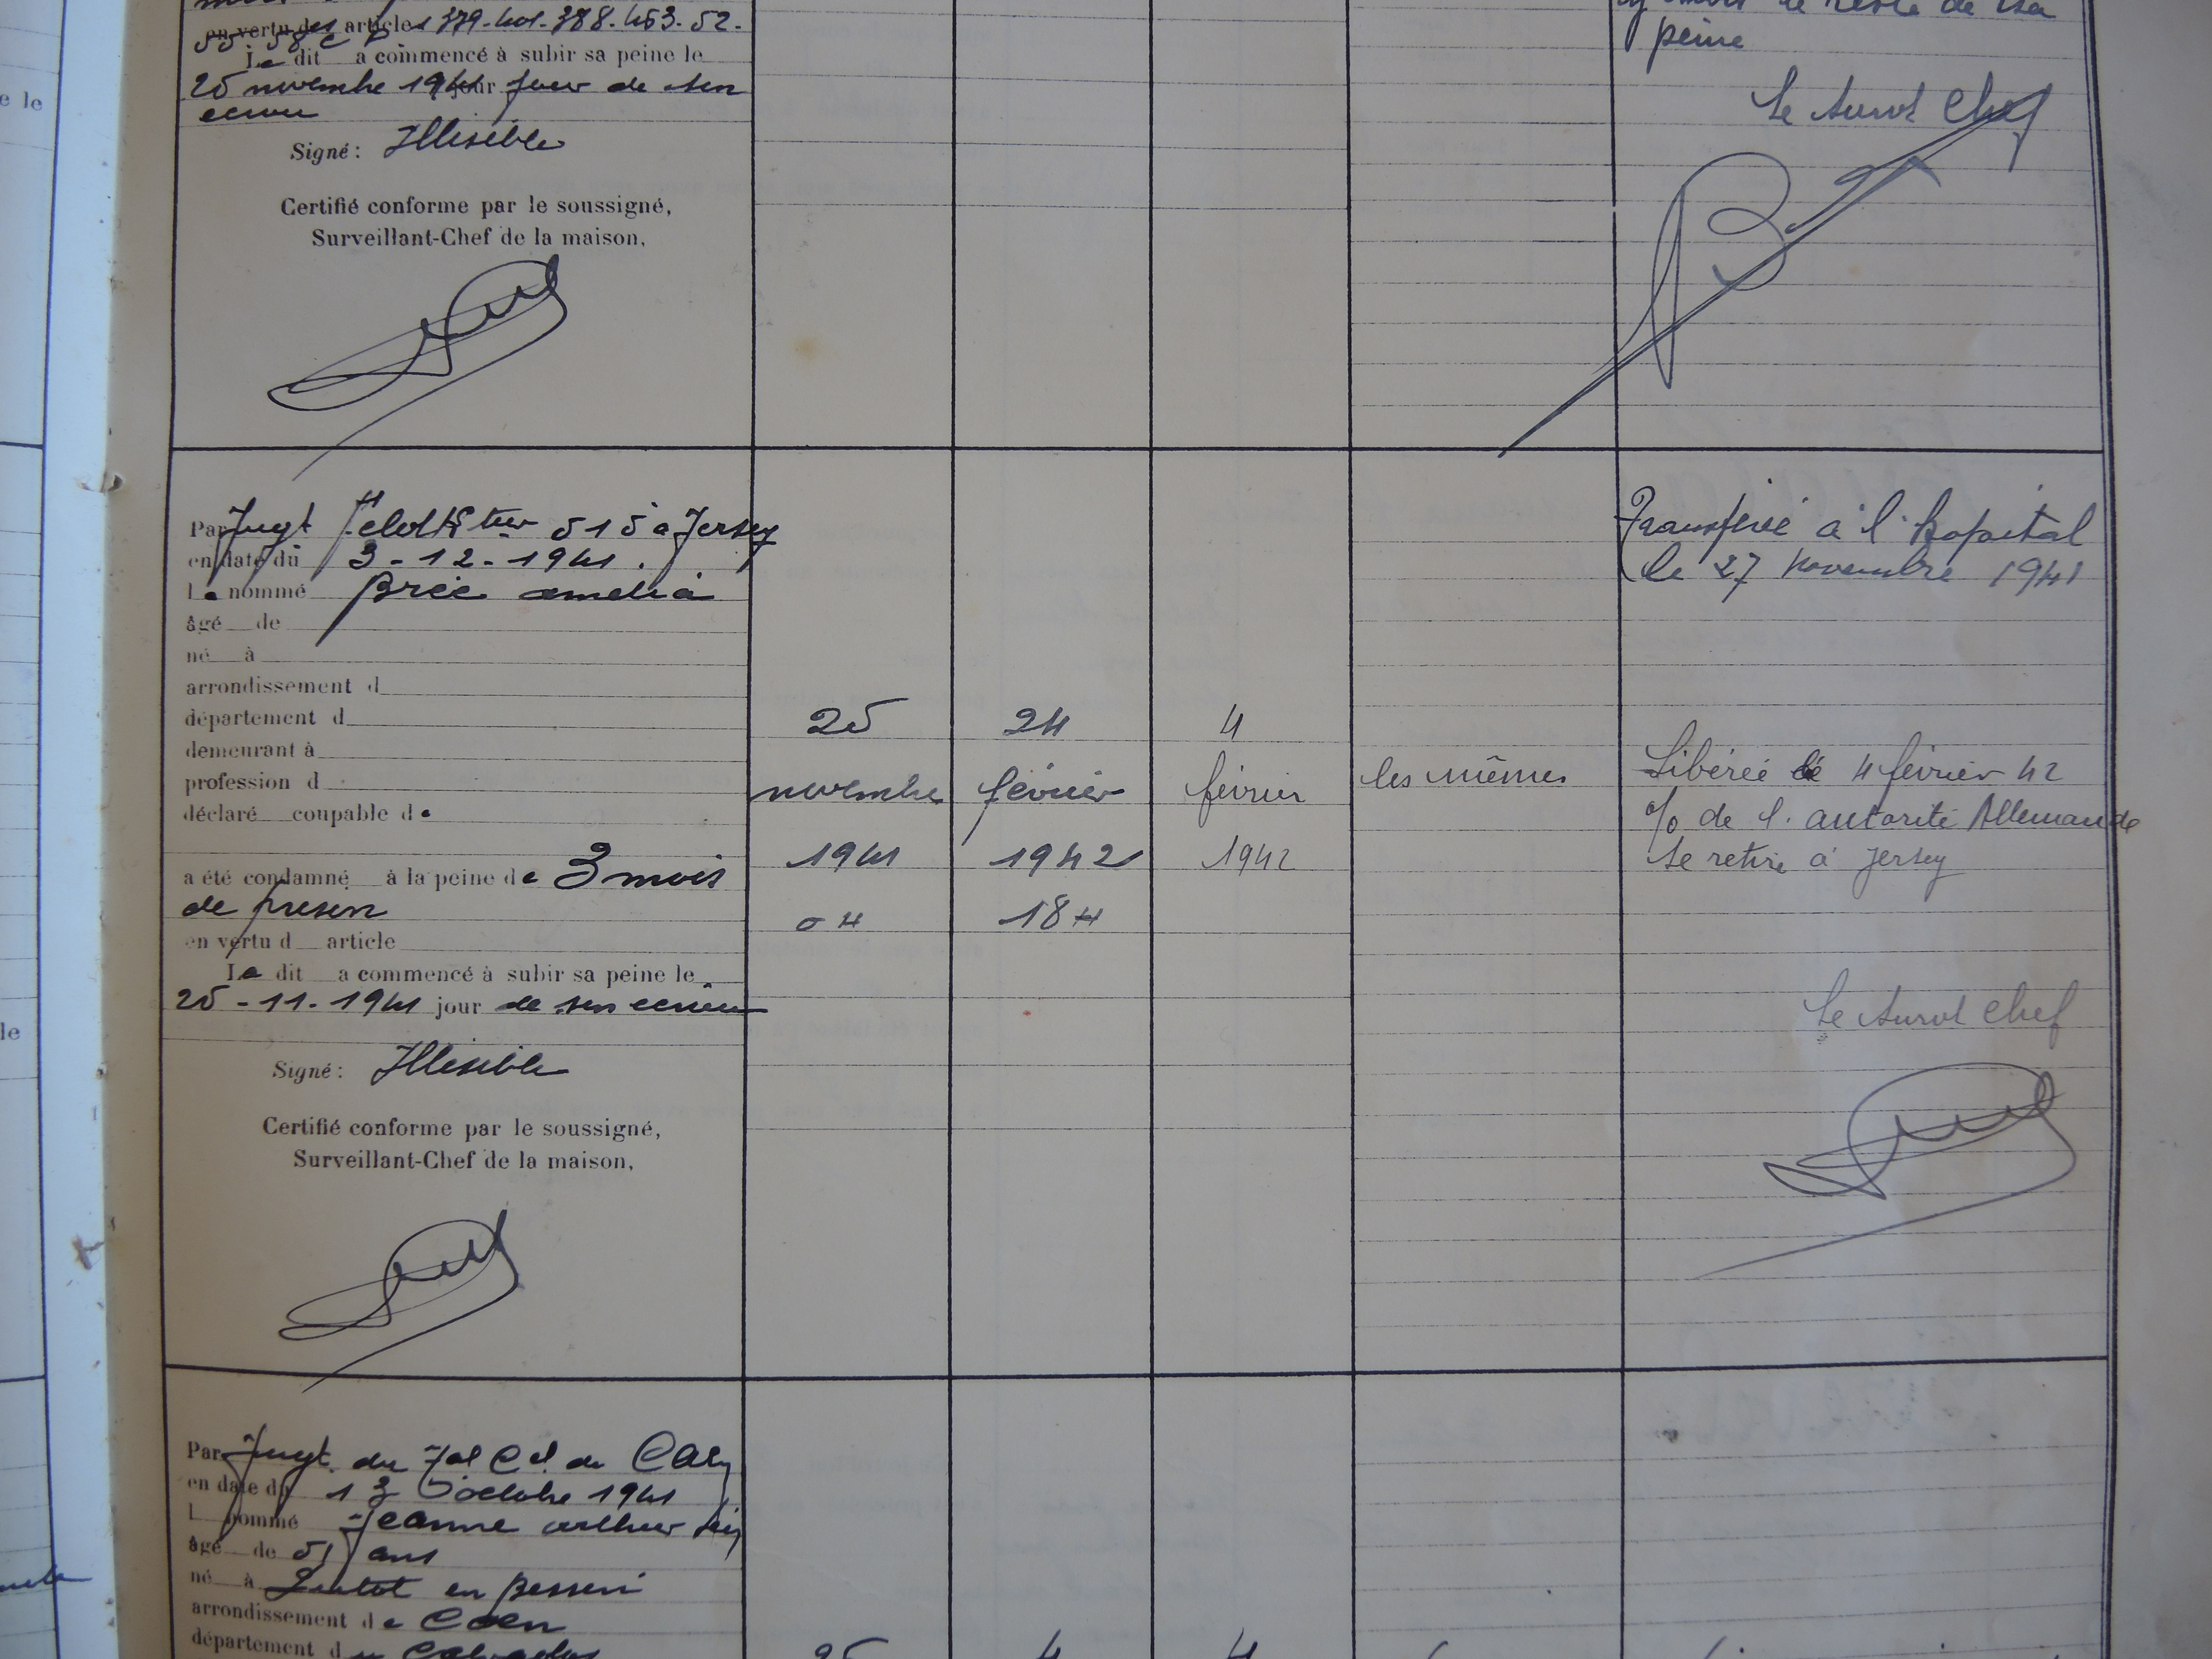 en vertu des articles 379-401-388-463-52-
55-58 C P.
Le dit a commencé à subir sa peine le
25 novembre 1941 jour jour de son
ecrou
Signé : Illisible
Certifié conforme par le soussigné,
Surveillant-Chef de la maison,
le reste de sa
peine
Le Survt Chef
e le
Par Jugt 515 a Jersey
en date du 3-12-1941.
La nommé Brée amelia
âgé de
né à
arrondissement d
département d
demeurant à
profession d
déclaré coupable de
a été condamné à la peine de 3 mois
de prison
en vertu d article
La dit a commencé à subir sa peine le
25-11-1941 jour de son ecrou
Signé : Illisible
Certifié conforme par le soussigné,
Surveillant-Chef de la maison,
25
novembre
1941
0 H
24
février
1942
18 H
4
février
1942
les mêmes
Transférée à l'hopital
le 27 Novembre 1941
Libérée le 4 février 42
% de l'autorité Allemande
se retire à Jersey
Le Survt Chef
le
Par Jugt du Tal Cel de Caen
en date du 13 octobre 1941
l nommé Jeanne arthur
âgé de 51 ans
né à en Bessin
arrondissement de Caen
département du Calvados
25
4
4